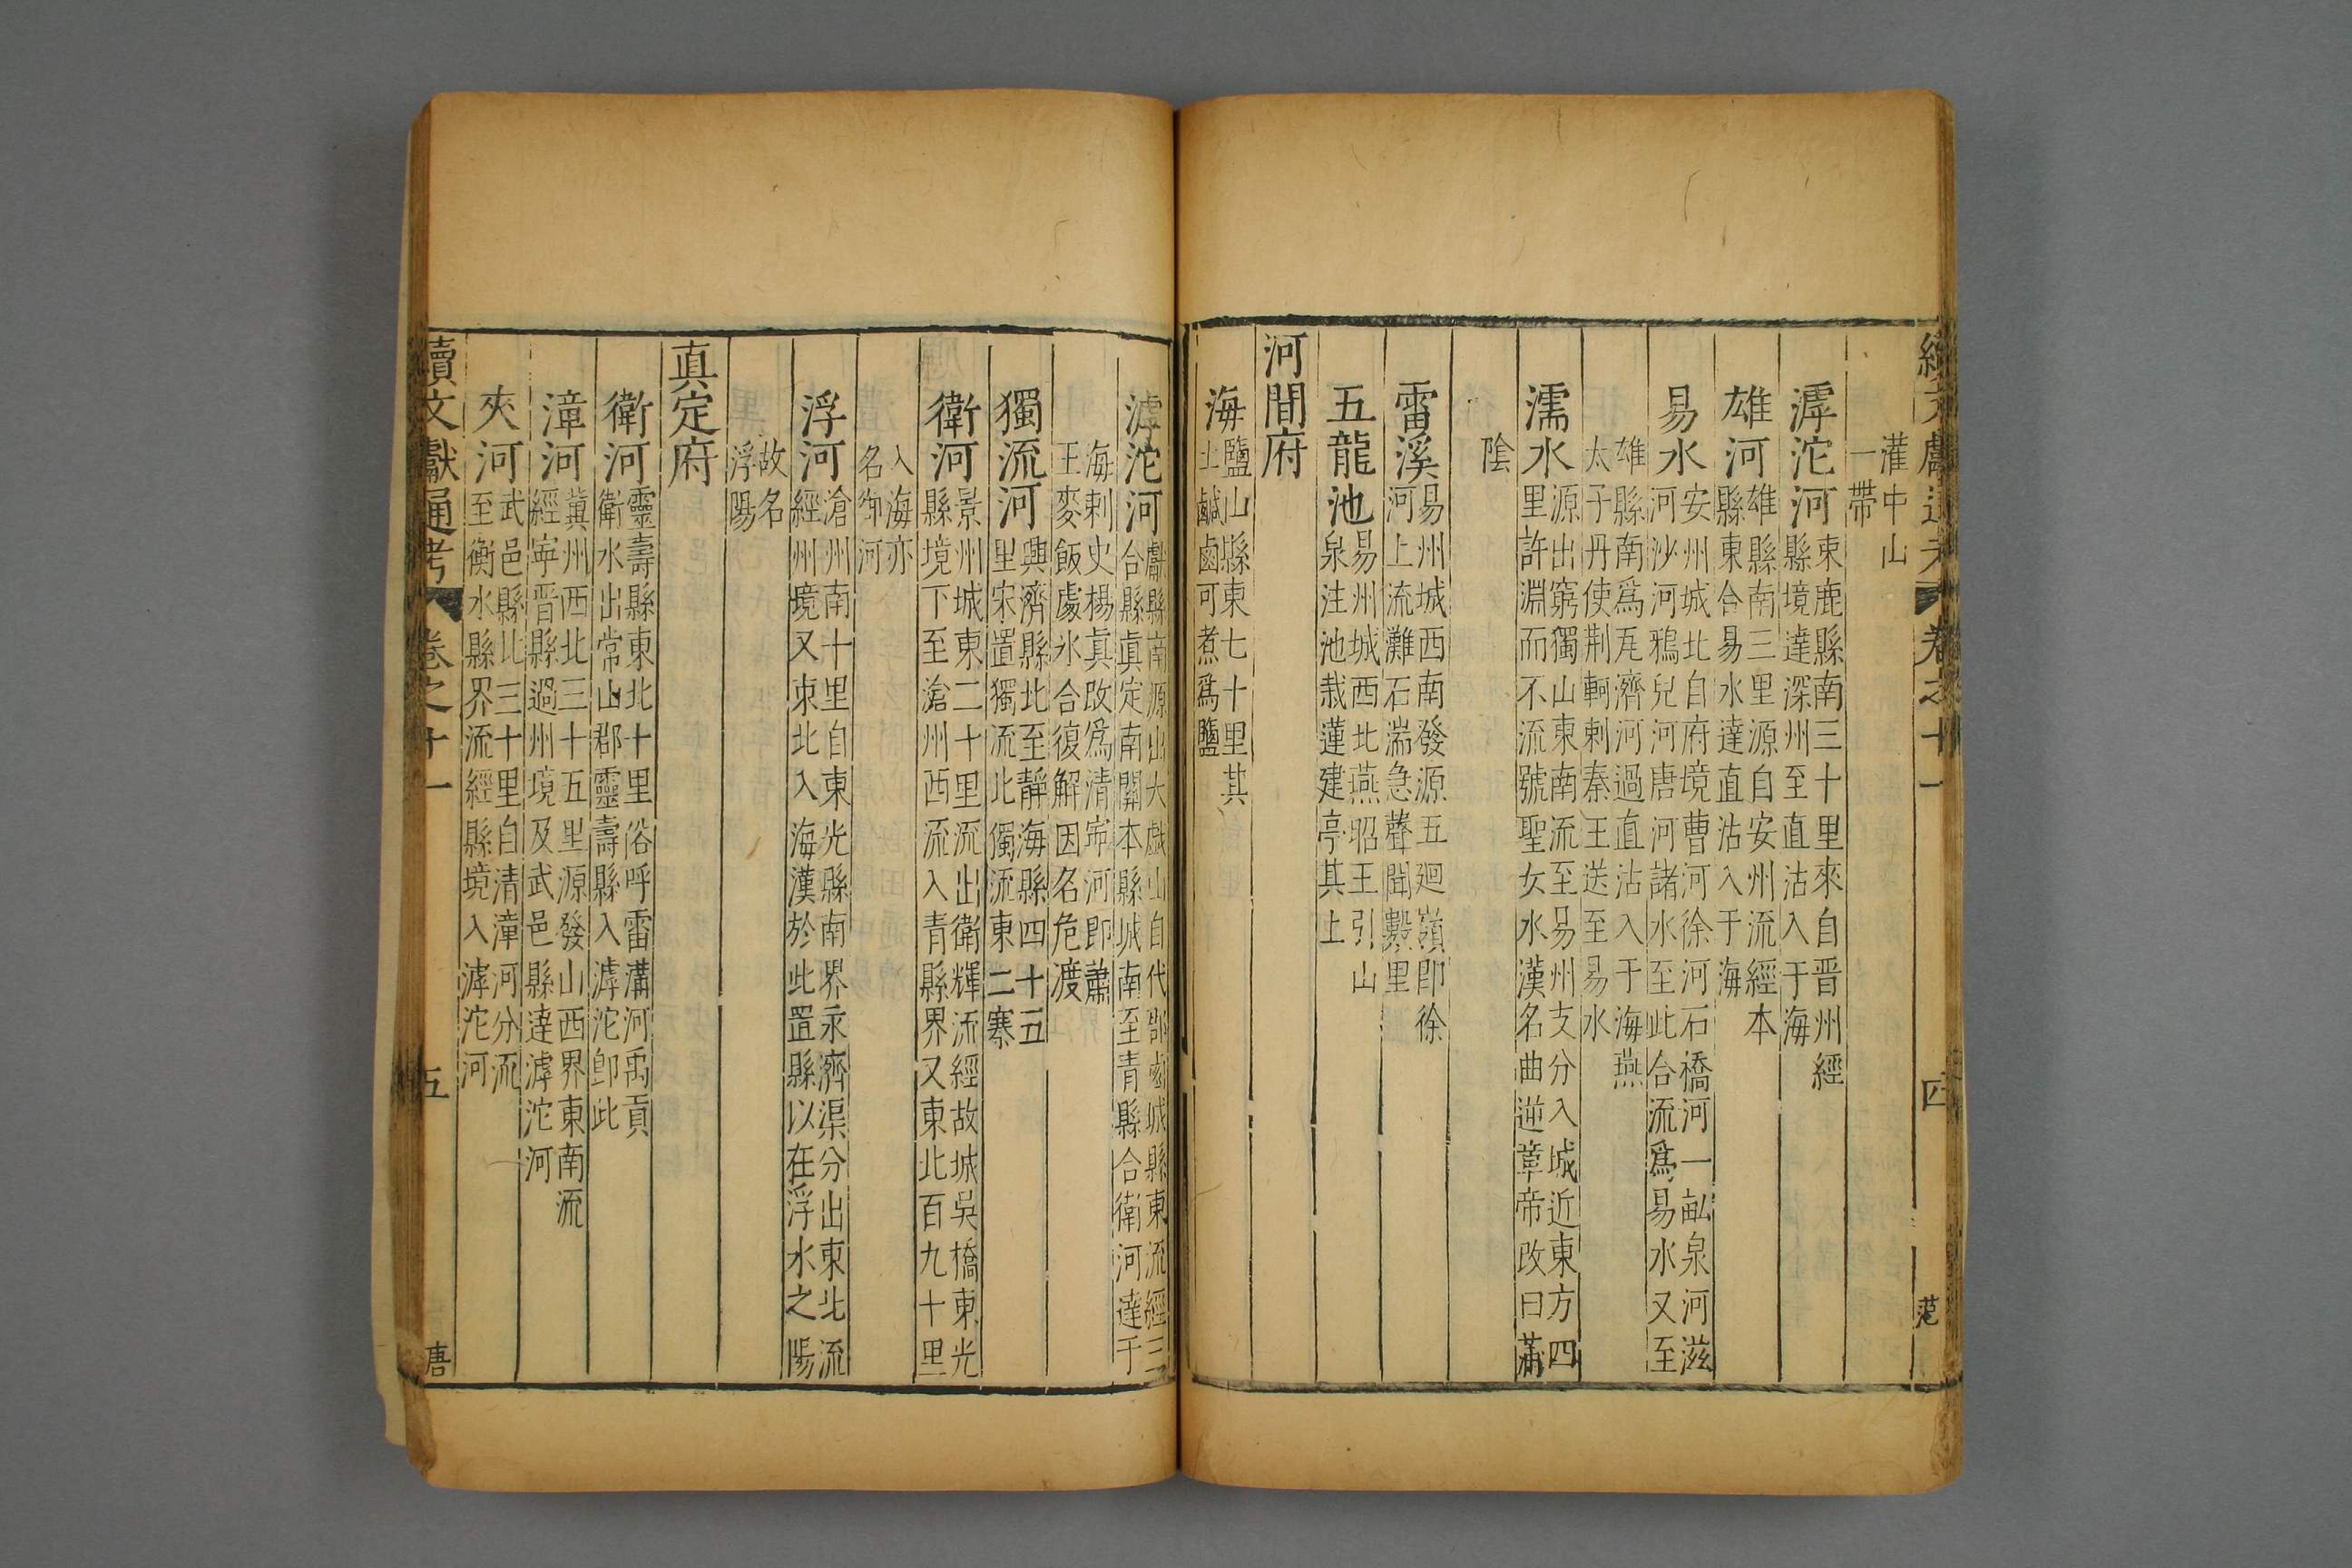 續文獻通考 卷之十一 四
灌中山
一帶
滹沱河 束鹿縣南三十里來自晋州經
縣境達深州至直沽入于海
雄河 雄縣南三里源自安州流經本
縣東合易水達直沽入于海
易水 安州城北自府境曹河徐河石橋河一畝泉河滋
河沙河鴉兒河唐河諸水至此合流爲易水又至
雄縣南爲瓦濟河過直沽入于海燕
太子丹使荆軻刺秦王送至易水
濡水 源出窮獨山東南流至易州支分入城近東方四
里許淵而不流號聖女水漢名曲逆章帝改曰蒲
陰
雷溪 易州城西南發源五廻嶺即徐
河上流灘石湍急聲聞數里
五龍池 易州城西北燕昭王引山
泉注池栽蓮建亭其上
河間府
海 鹽山縣東七十里其
土鹹鹵可煮爲鹽
滹沱河 獻縣南源出大戲山自代郡鹵城縣東流經三
合縣真定南關本縣城南至青縣合衛河達于
海刺史楊真改爲清寕河即蕭
王麥飯處氷合復解因名危渡
獨流河 興濟縣北至靜海縣四十五
里宋置獨流北獨流東二寨
衛河 景州城東二十里流出衛輝流經故城吳橋東光
縣境下至滄州西流入青縣界又東北百九十里
入海亦
名御河
浮河 滄州南十里自東光縣南界永濟渠分出東北流
經州境又東北入海漢於此置縣以在浮水之陽
故名
浮陽
真定府
衛河 靈壽縣東北十里俗呼雷溝河禹貢
衛水出常山郡靈壽縣入滹沱卽此
漳河 冀州西北三十五里源發山西界東南流
經寧晋縣過州境及武邑縣達滹沱河
夾河 武邑縣北三十里自清漳河分流
至衡水縣界流經縣境入滹沱河
續文獻通考 卷之十一 五 唐